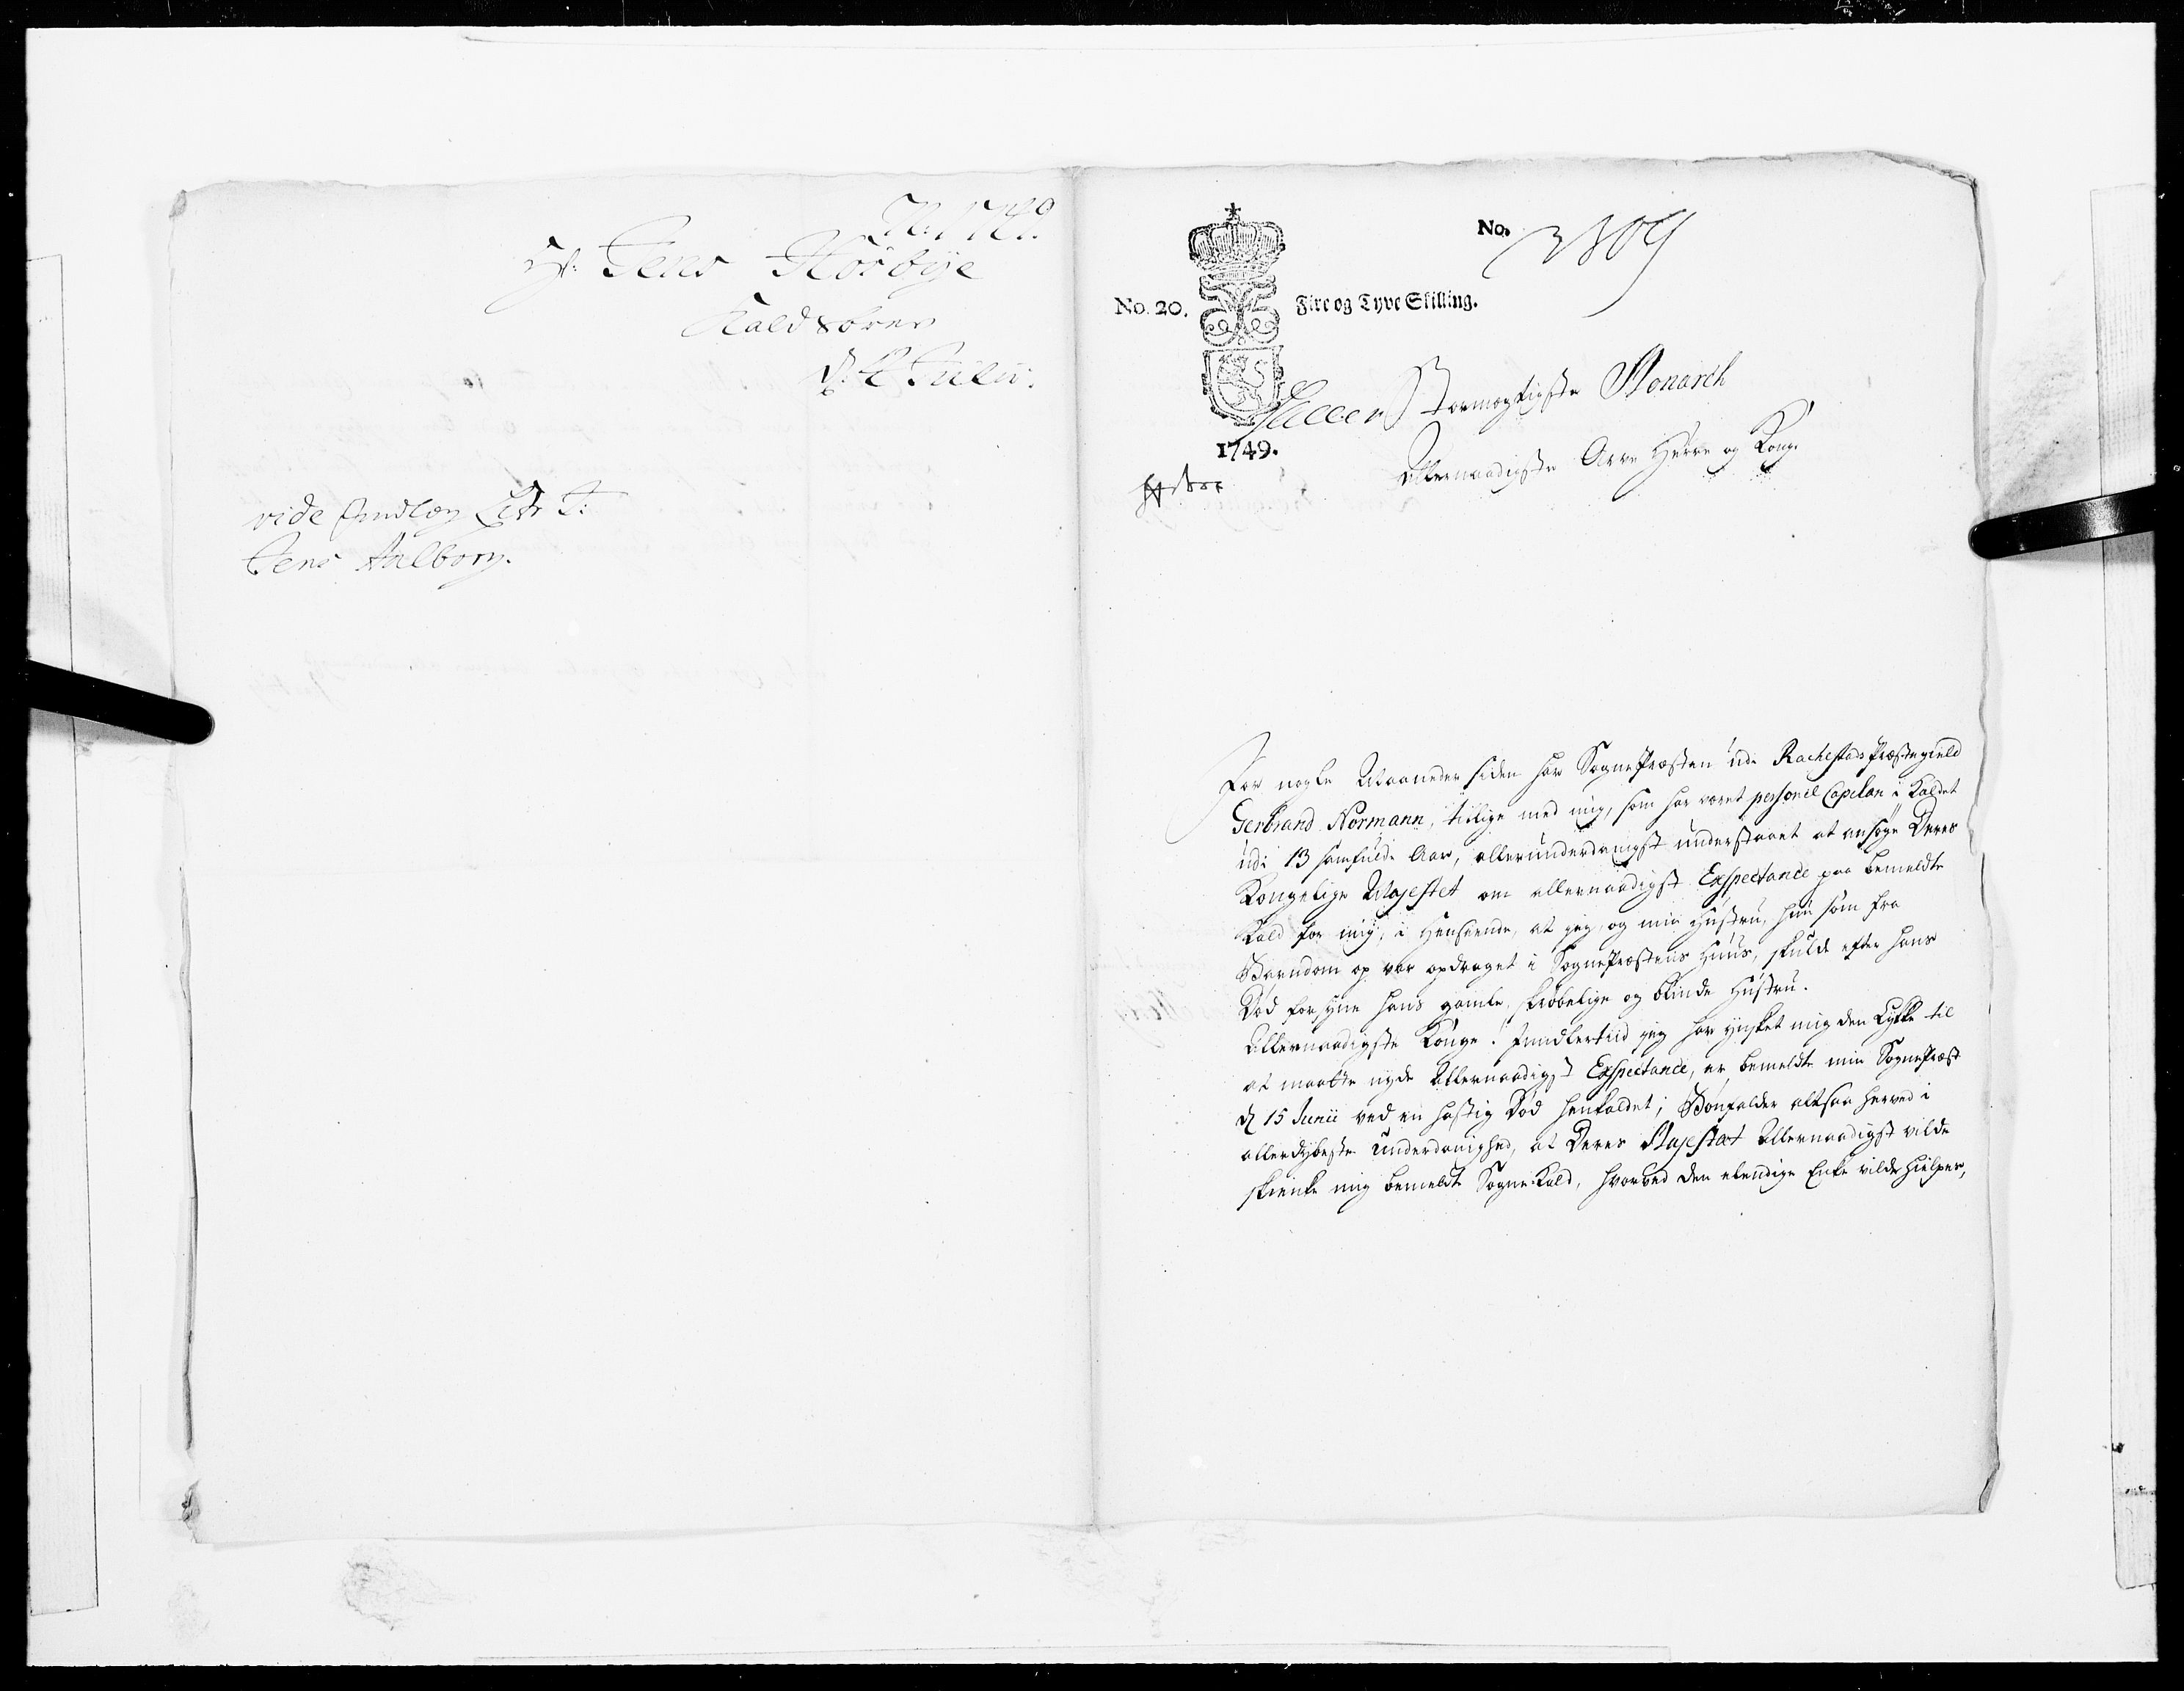 1749.
Hr. Jens Hörbÿe
Kald
d: 4 Julii.
vide Indlæg Litr J:
Jens Aalborg.
No. 2809
No. 20. Fire og Tyve Skilling.
1749.
Stormægtigste Monarch
Allernaadigste Arve Herre og Kong!
For nogle Maaneder siden har SognePræsten udi Rachestads Præstegield
Gerbrand Normann, tillige med mig, som har været personel Capelan i Kaldet
udi 13 samfulde Aar, allerunderdanigst understaaet at ansøge Deres
Kongelige Majestet om allernaadigst Exspectance paa bemeldte
Kald for mig, i Henseende, at jeg, og min Hustru, hun som fra
Barndom op var opdraget i SognePræstens Huus, skulde efter hans
Död forsyne hans gamle, skrøbelige og blinde Hustru.
Allernaadigste Konge! Imidlertiid jeg har ynsket mig den Lykke til
at maatte nyde Allernaadigst Exspectance, er bemeldte min SognePræst
d 15 Junii ved en hastig Död henkaldet; Bönfalder altsaa herved i
allerdybeste Underdanighed, at Deres Majestæt Allernaadigst vilde
skienke mig bemeldte Sogne-Kald, hvorved den elendige Enke vilde hielpes,